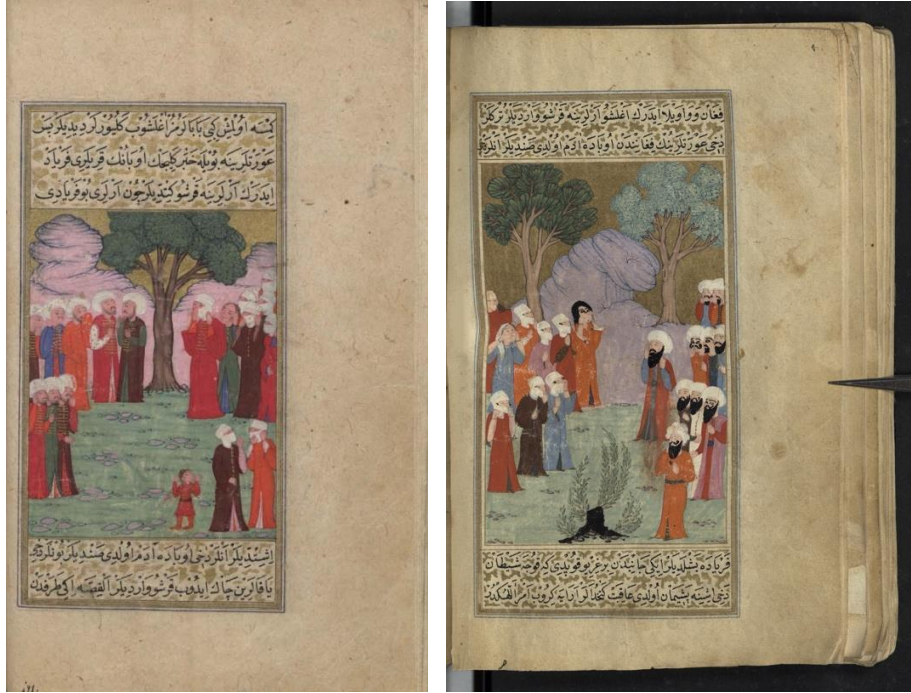 كمسنه اولمش كبى بابالرمز اغلشوب كليورلر ديديلر پس
عورتلرينه بويله خبر كليجك اوبانك قريلرى فرياد
ايدرك ارلرينه قرشو كتديلر چون ارلرى بو فريادى
اشتديلر انلر دخى اوباده آدم اولدى صنديلر بونلر دخى
ياقالرين چاك ايدوب قرشو وارديلر القصه ايكى طرفدن
فغان وواويلا ايدرك اغلشو ارلرينه قرشو وارديلر تركلر
دخى عورتلرينك فغانندن اوباده ادم اولدى صنديلر انلر
فرياده بشلديلر ايكى جانبندن بر غريو قوپدى كه قوجه شيطان
دخى اشينه پشيمان اولدى عاقبت كتخدالر ارايه كروب